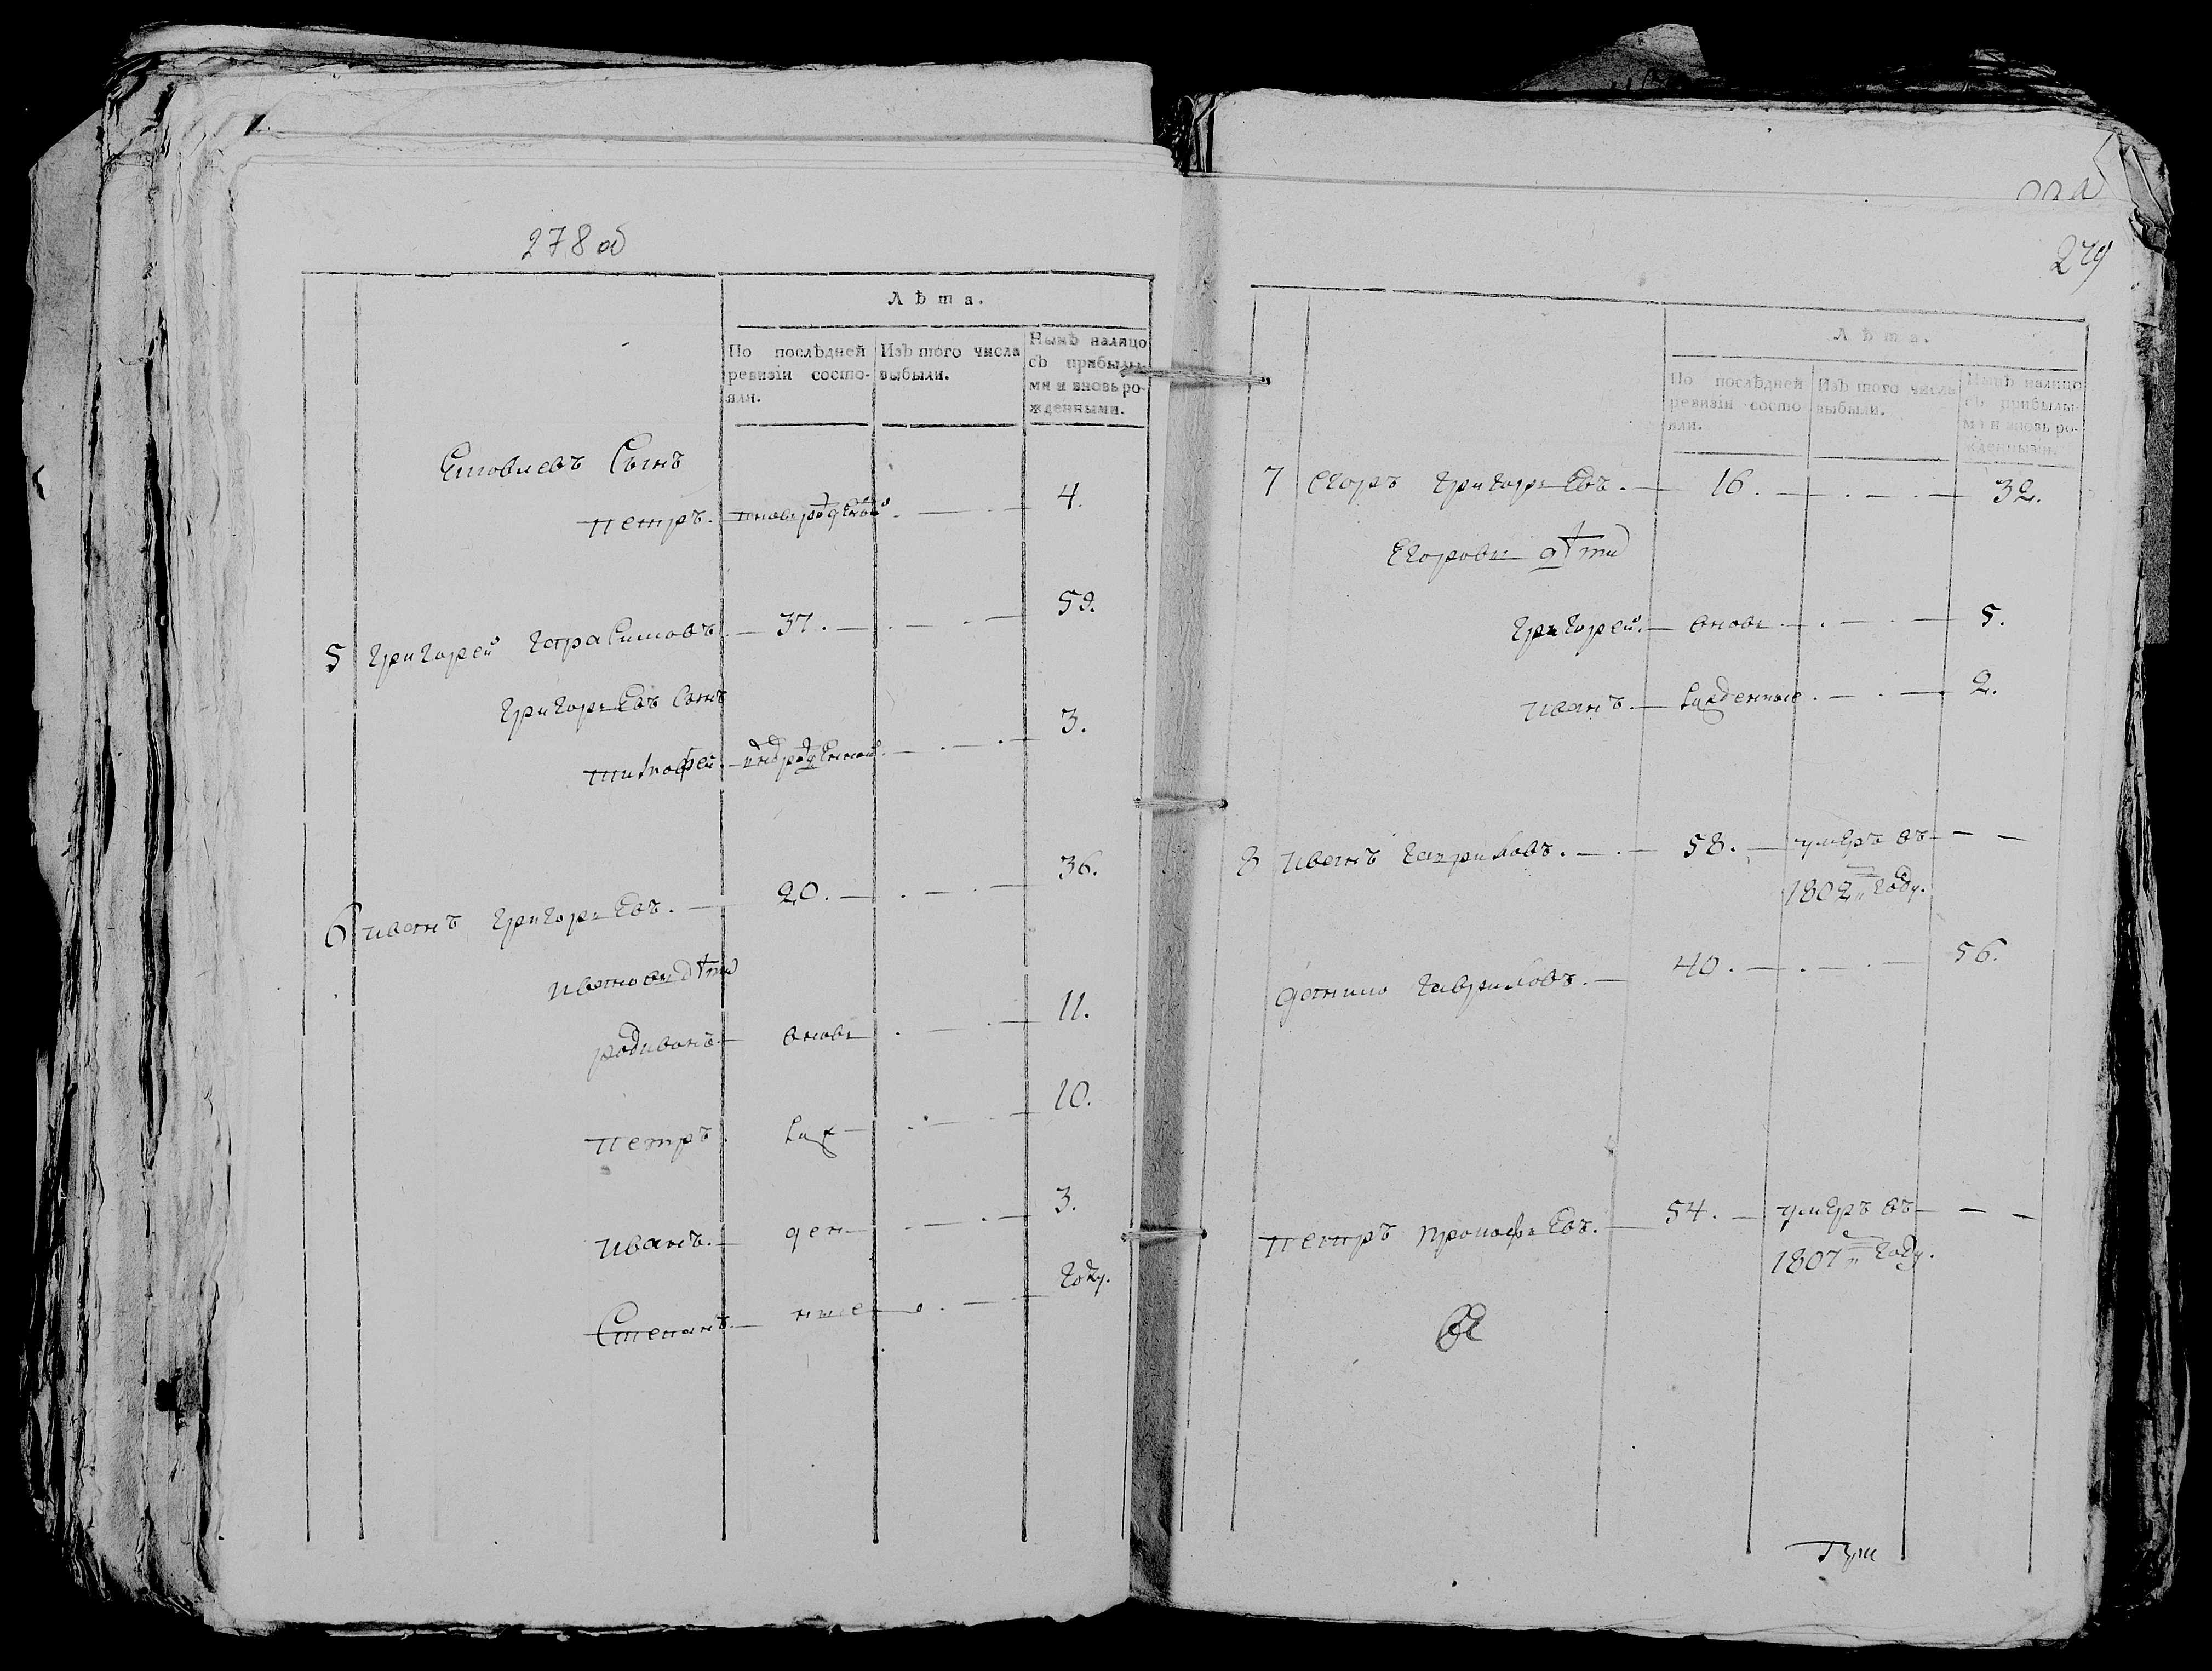 278 об
Лѣта.
По послѣдней ревизіи состояли.
Изъ того числа выбыли.
Нынѣ налицо съ прибылыми и вновь рожденными.
Яковлевъ Сынъ
петръ. 4.
5 григорей герасимовъ. 37. 59.
григорьевъ сынъ
тимофей. 3.
6 иванъ григорьевъ. 20. 36.
ивановы дѣти
родивонъ вновь 11.
петръ. 10.
иванъ. ден 3.
Степанъ ные году.
279
Лѣта.
По послѣдней ревизіи состояли.
Изъ того числа выбыли.
Нынѣ налицо съ прибылыми и вновь рожденными.
7 егоръ григорьевъ. 16. 32.
Егоровы дѣти
григорей. вновь 5.
иванъ. 2.
8 иванъ гавриловъ. 58. умеръ въ
1802 году.
данило гавриловъ. 40. 56.
петръ 54. умеръ въ
1807 году.